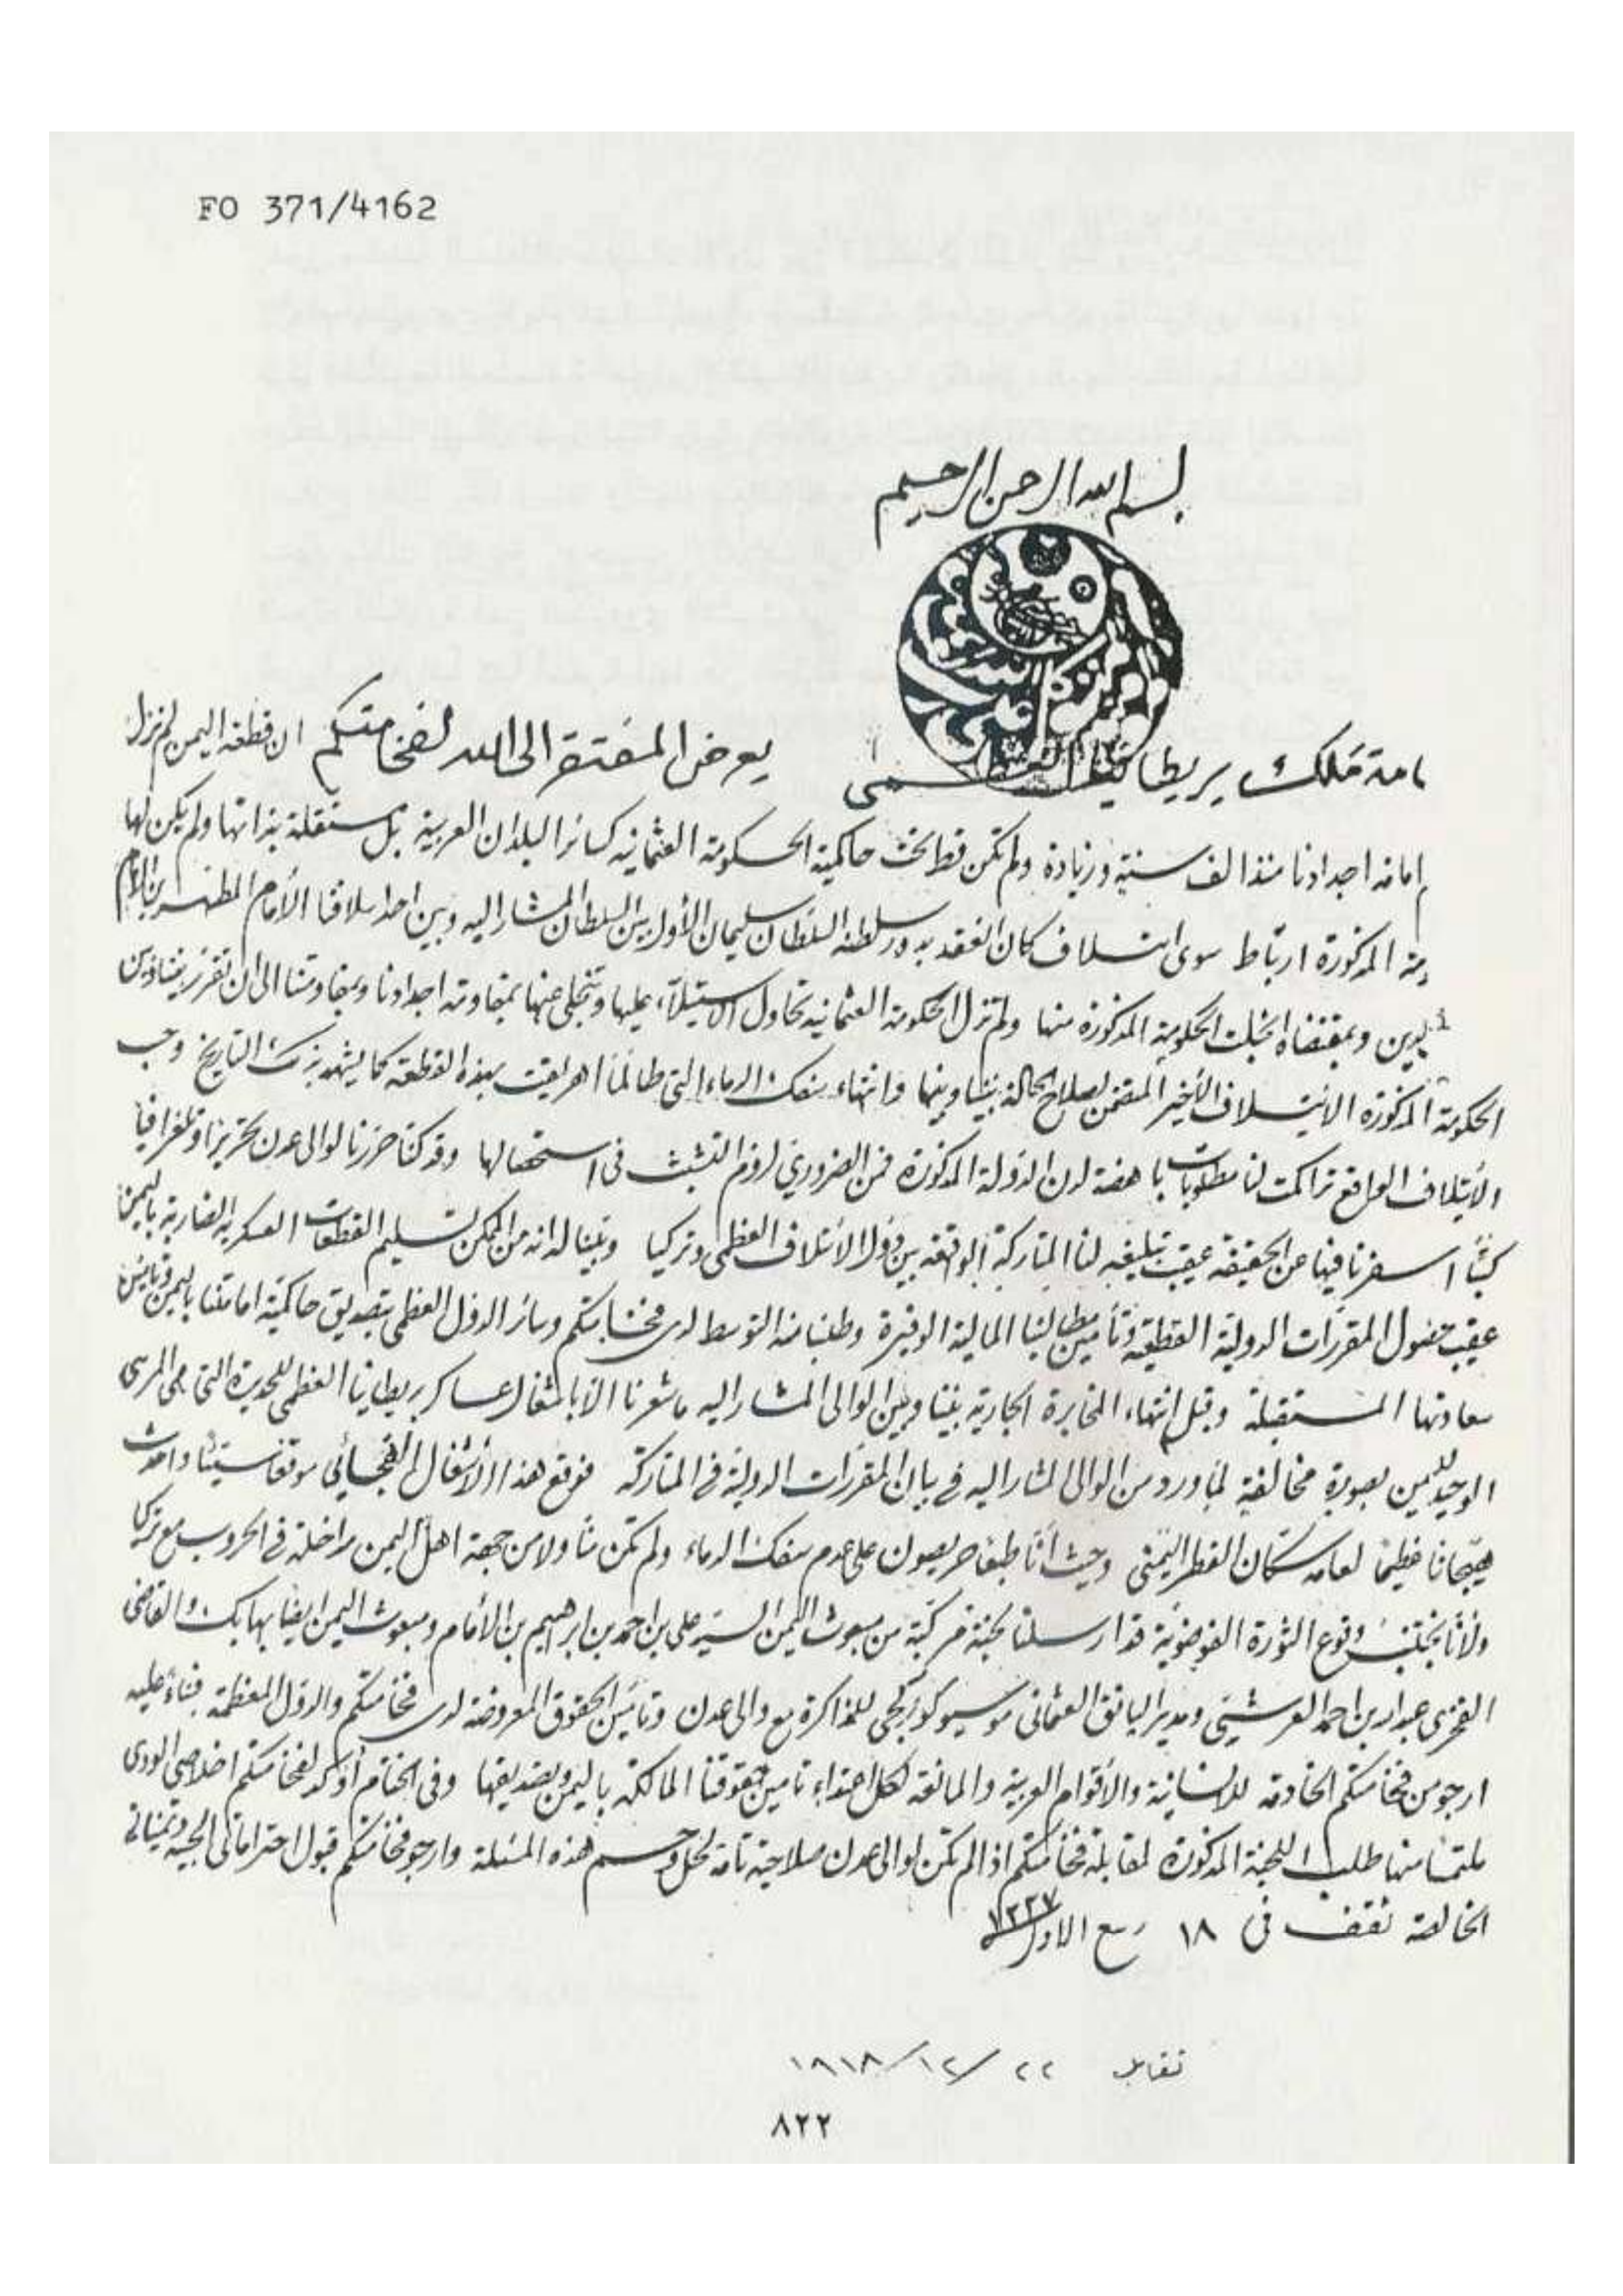 FO 371/4162
بسم الله الرحمن الرحيم
امة ملك بريطانيا العظمى يعرض المفتقر الى الله لفخامتكم ان قطعة اليمن لم تزل
امامة اجدادنا منذ الف سنة وزيادة ولم تكن قط تحت حاكمية الحكومة العثمانيه كسائر البلدان العربية بل مستقلة بذاتها ولم يكن لها
المذكورة ارتباط سوى ائتلاف كان انعقد بدور سلطة السلطان سليمان الأول بين السلطان المشار اليه وبين احد اسلافنا الأمام المطهر بن الامام
الدين وبمقتضاه انجلت الحكومة المذكورة منها ولم تزل الحكومة العثمانيه تحاول الاستيلآء عليها وتنجلى عنها بمقاومة اجدادنا وبمقاومتنا الى ان تقرر بيننا وبين
الحكومة المذكورة الائتلاف الأخير المتضمن لصلاح الحالة بيننا وبينها وانتهاء سفك الدماء التى طالما اهريقت بهذه القطعة كما يشهد بذلك التاريخ وحسب
الأئتلاف الواقع تراكمت لنا مطلوبات باهضة لدن الدولة المذكورة فمن الضروري لزوم التشبث فى استحصالها وقد كنا حررنا لوالى عدن تحريرا وتلغرافيا
كتبًا اسفرنا فيها عن الحقيقة عقيب تبليغه لنا المتاركة الواقعة بين دول الائتلاف العظمى وتركيا وبينا له انه من الممكن تسليم القطعات العسكريه الضاربة باليمن
عقيب حصول المقررات الدولية القطعية وتأمين مطالبنا المالية الوفيرة وطلبنا منه التوسط لدى فخامتكم وسائر الدول العظمى بتصديق حاكمية امامتنا باليمن وتأسيس
سعادتها المستقبلة وقبل انتهاء المخابرة الجارية بيننا وبين الوالى المشار اليه ما شعرنا الا باشغال عساكر بريطانيا العظمى للحديدة التى هى المرسى
الوحيد لليمن بصورة مخالفة لما ورد من الوالى المشار اليه في بيان المقررات الدولية في المتاركة فوقع هذا الأشغال الفجائي موقعا سيئا واحدث
هيجانا عظيما لعامه سكان القطر اليمنى وحيث أنا طبعا حريصون على عدم سفك الدماء ولم تكن منا ولا من جهة اهل اليمن مداخلة في الحروب مع تركيا
ولأنا نجتنب وقوع الثورة الفوضوية قد ارسلنا لجنة مركبة من مبعوث اليمن السيد علي بن احمد بن ابرهيم بن الأمام ومبعوث اليمن ايضا بها بك والقاضى
الفخرى عبدالله بن احمد العرشي ومدير البانق العثمانى موسيو كورجى للمذاكرة مع والى عدن وتأمين الحقوق المعروضة لدى فخامتكم والدول المعظمة فبناء عليه
ارجو من فخامتكم الخادمة للانسانية والأقوام العربية والمانعة لكل اعتداء تامين حقوقنا المالكة باليمن وتصديقها وفى الختام أؤكد لفخامتكم اخلاصي الودى
ملتمسًا منها طلب اللجنة المذكورة لمقابلة فخامتكم اذا لم تكن لوالى عدن صلاحية تامة لحل وحسم هذه المسئلة وارجو فخامتكم قبول احتراماتى الحبيه وتمنياتى
الخالصة تقف في ١٨ ربيع الاول ١٣٣٧
تقابل ٢٢/١٢/١٨١٨
٨٢٢